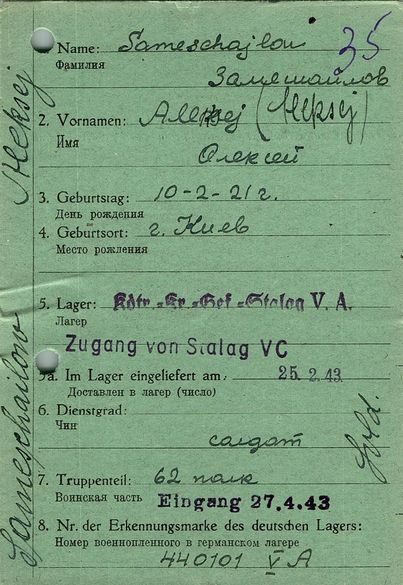 35
1. Name: Sameschajlow
Фамилия
Замешайлов
2. Vornamen: Alexej (Aleksej)
Имя
Олексей
3. Geburtstag: 10-2-21 г.
День рождения
4. Geburtsort: г. Киев
Место рождения
5. Lager: Kdtr.-Kr.-Gef.-Stalag V. A.
Лагер
Zugang von Stalag VC
5a. Im Lager eingeliefert am: 25.2.43
Доставлен в лагер (число)
6. Dienstgrad:
Чин
солдат
7. Truppenteil: 62 полк
Воинская часть Eingang 27.4.43
8. Nr. der Erkennungsmarke des deutschen Lagers:
Номер военнопленного в германском лагере
440101 V A
Sameschailow Aleksej
Sold.